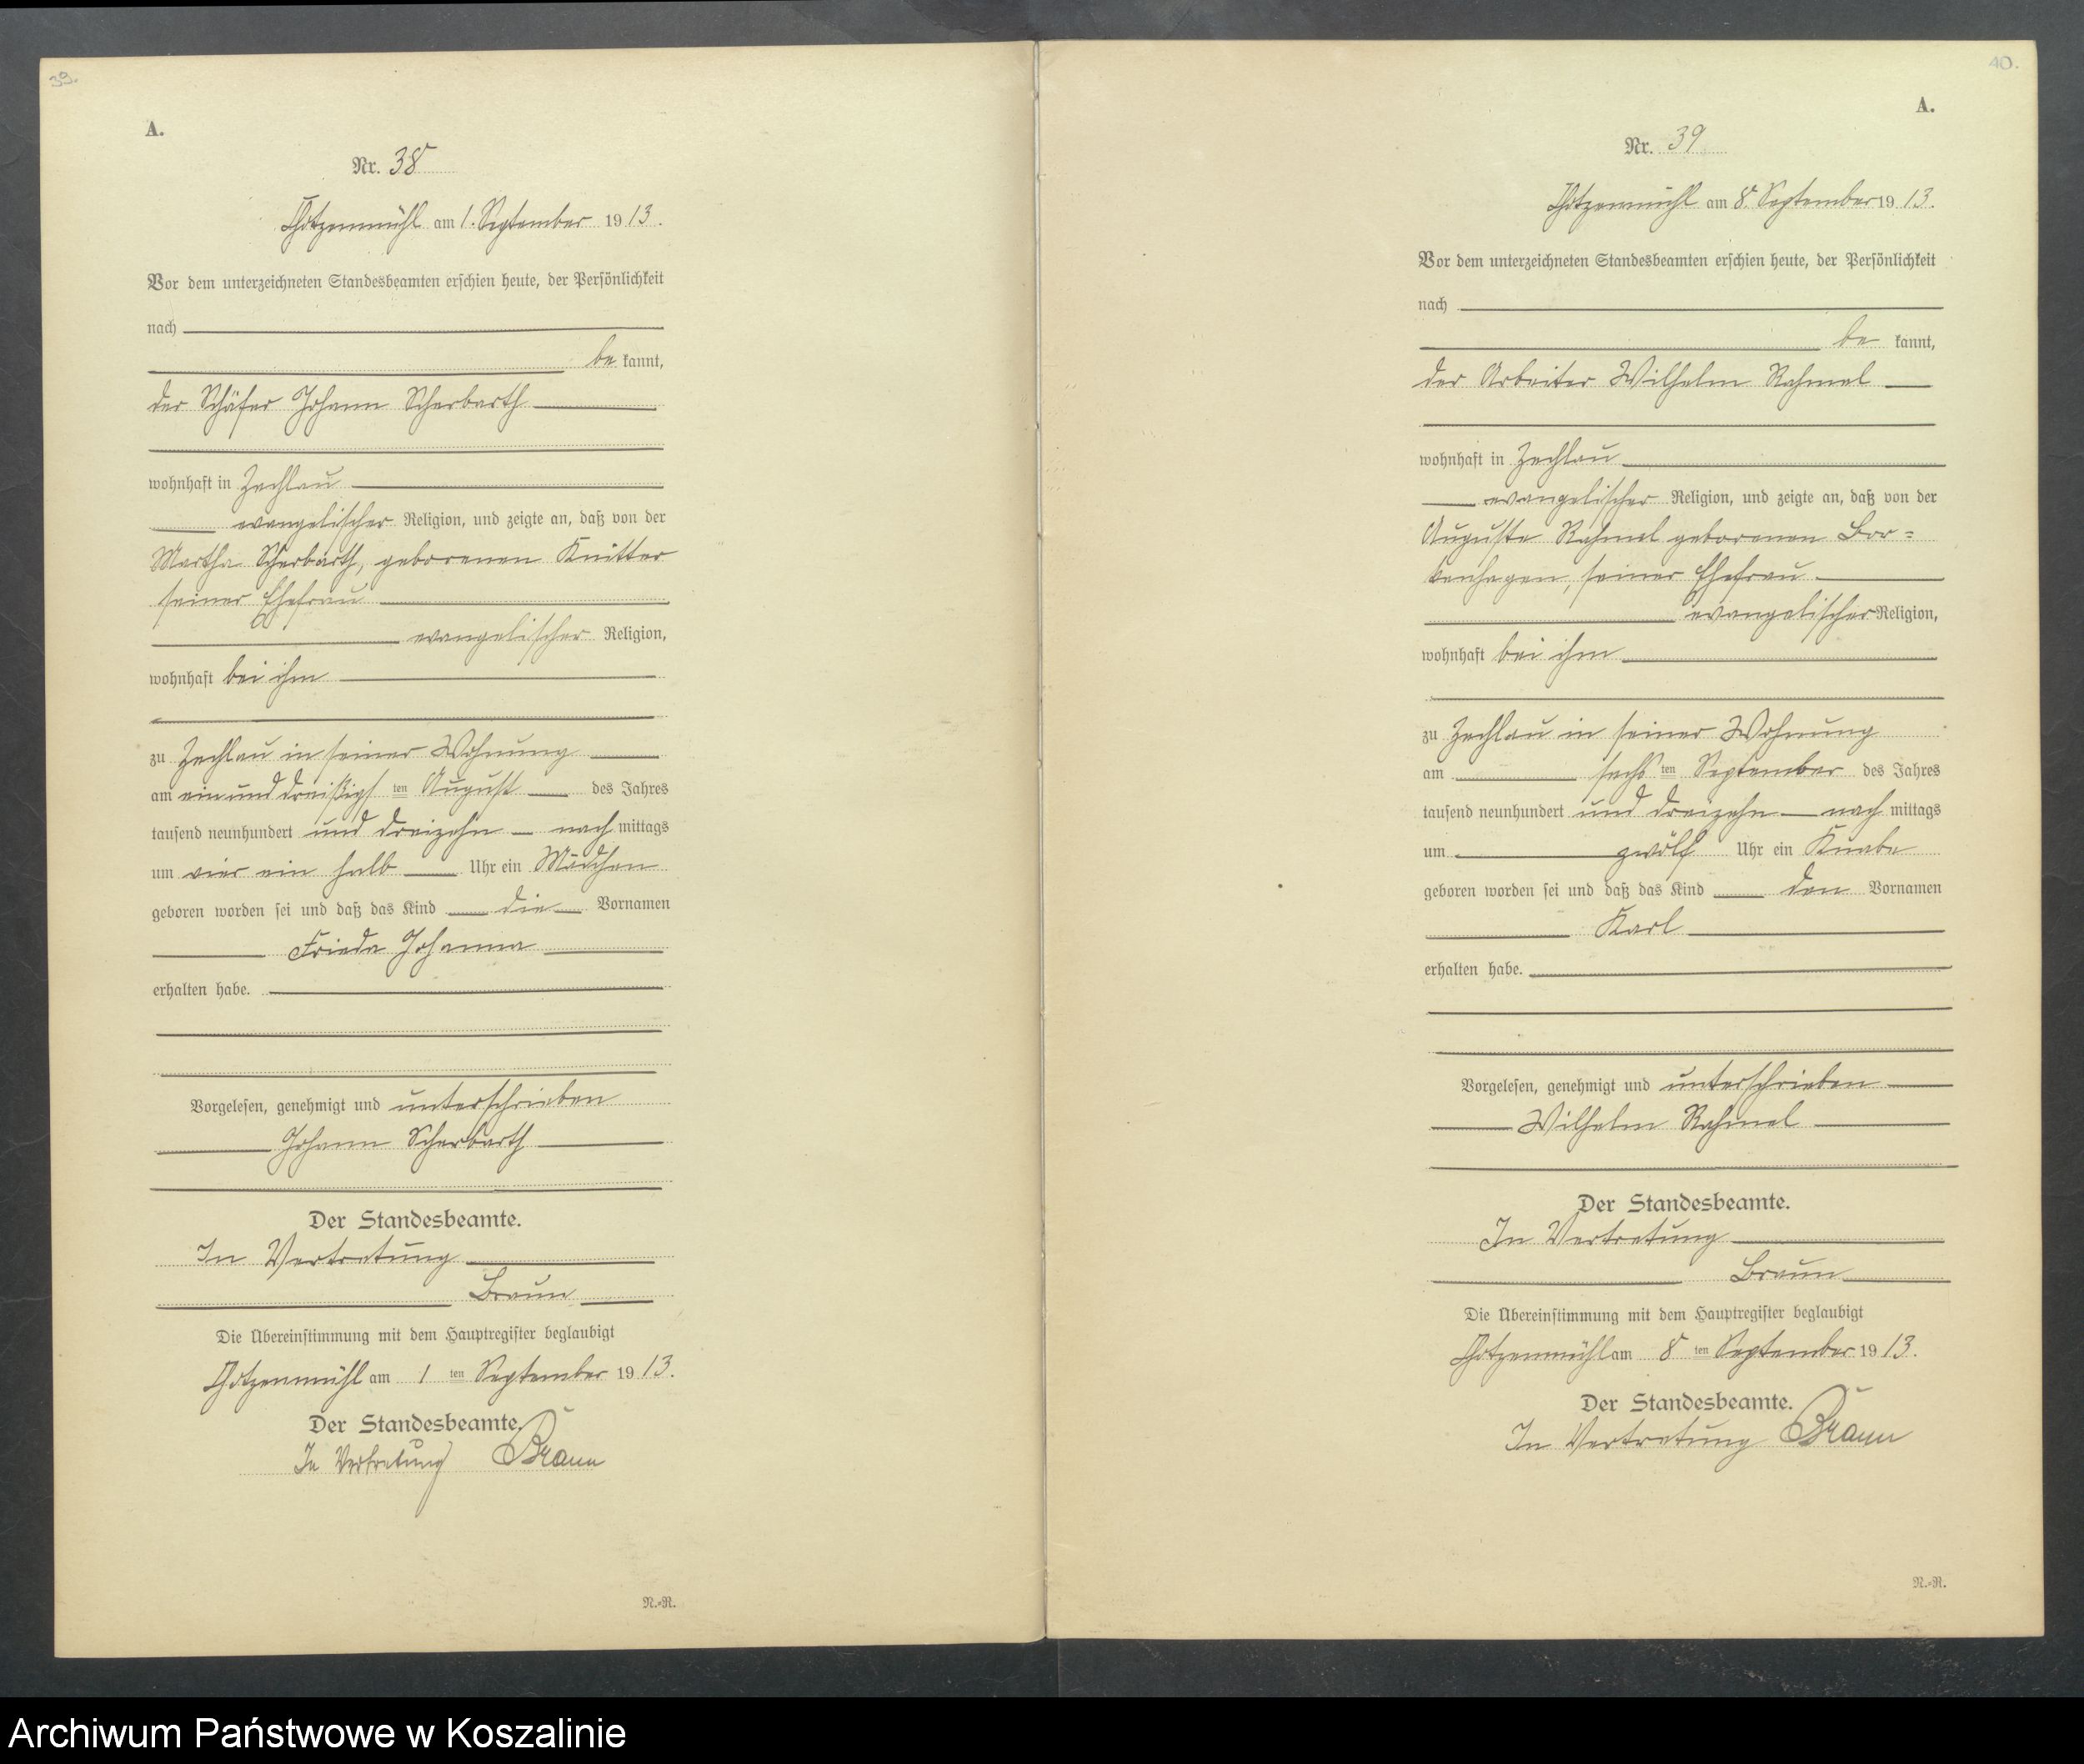 39.
A.
Nr. 38
Chotzenmühl am 1. September 1913.
Vor dem unterzeichneten Standesbeamten erschien heute, der Persönlichkeit
nach
be kannt,
der Schäfer Johann Scherbarth
wohnhaft in Zechlau
evangelischer Religion, und zeigte an, daß von der
Martha Scherbarth, geborenen Knitter
seiner Ehefrau
evangelischer Religion,
wohnhaft bei ihm
zu Zechlau in seiner Wohnung
am ein und dreißigs ten August des Jahres
tausend neunhundert und dreizehn nach mittags
um vier ein halb Uhr ein Mädchen
geboren worden sei und daß das Kind die Vornamen
Frieda Johanna
erhalten habe.
Vorgelesen, genehmigt und unterschrieben
Johann Scherbarth
Der Standesbeamte.
In Vertretung
Braun
Die Übereinstimmung mit dem Hauptregister beglaubigt
Chotzenmühl am 1 ten September 1913.
Der Standesbeamte.
In Vertretung Braun
N.=R.
40.
A.
Nr. 39
Chotzenmühl am 8. September 1913.
Vor dem unterzeichneten Standesbeamten erschien heute, der Persönlichkeit
nach
be kannt,
der Arbeiter Wilhelm Rahmel
wohnhaft in Zechlau
evangelischer Religion, und zeigte an, daß von der
Auguste Rahmel geborenen Bor=
kenhagen, seiner Ehefrau
evangelischer Religion,
wohnhaft bei ihm
zu Zechlau in seiner Wohnung
am sechs ten September des Jahres
tausend neunhundert und dreizehn nach mittags
um zwölf Uhr ein Knabe
geboren worden sei und daß das Kind den Vornamen
Karl
erhalten habe.
Vorgelesen, genehmigt und unterschrieben
Wilhelm Rahmel
Der Standesbeamte.
In Vertretung
Braun
Die Übereinstimmung mit dem Hauptregister beglaubigt
Chotzenmühl am 8 ten September 1913.
Der Standesbeamte.
In Vertretung Braun
N.=R.
Archiwum Państwowe w Koszalinie